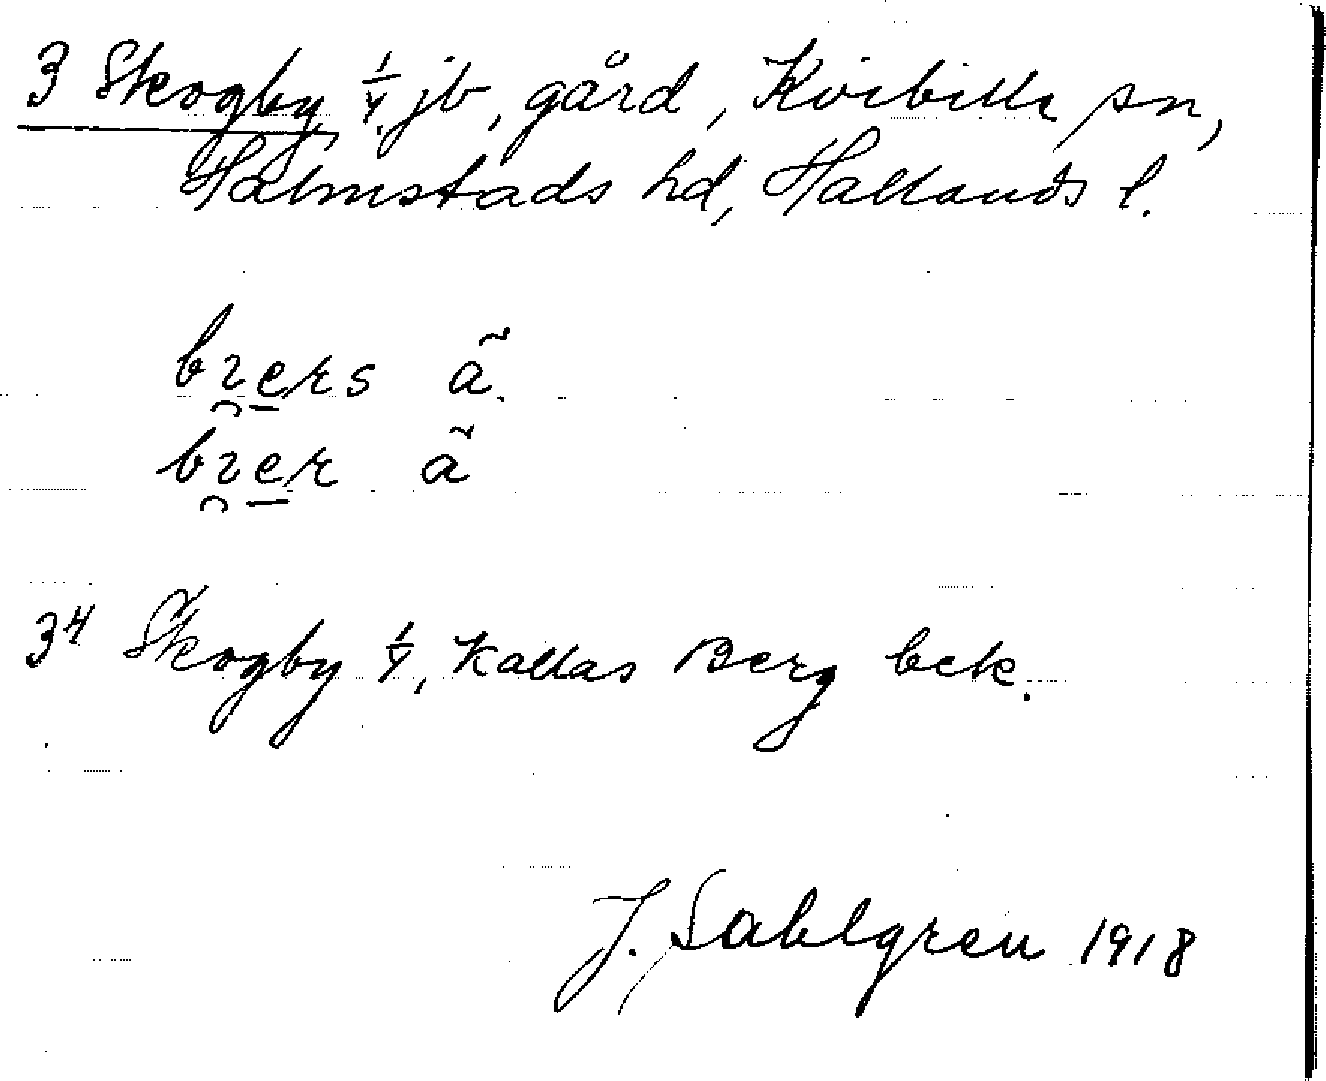 3 Skogby 1/4 jb, gård, Kvibille sn,
Halmstads hd, Hallands l.
brers ã.
brer ã
3⁴ Skogby 1/4, kallas Berg bek.
J. Sahlgren 1918